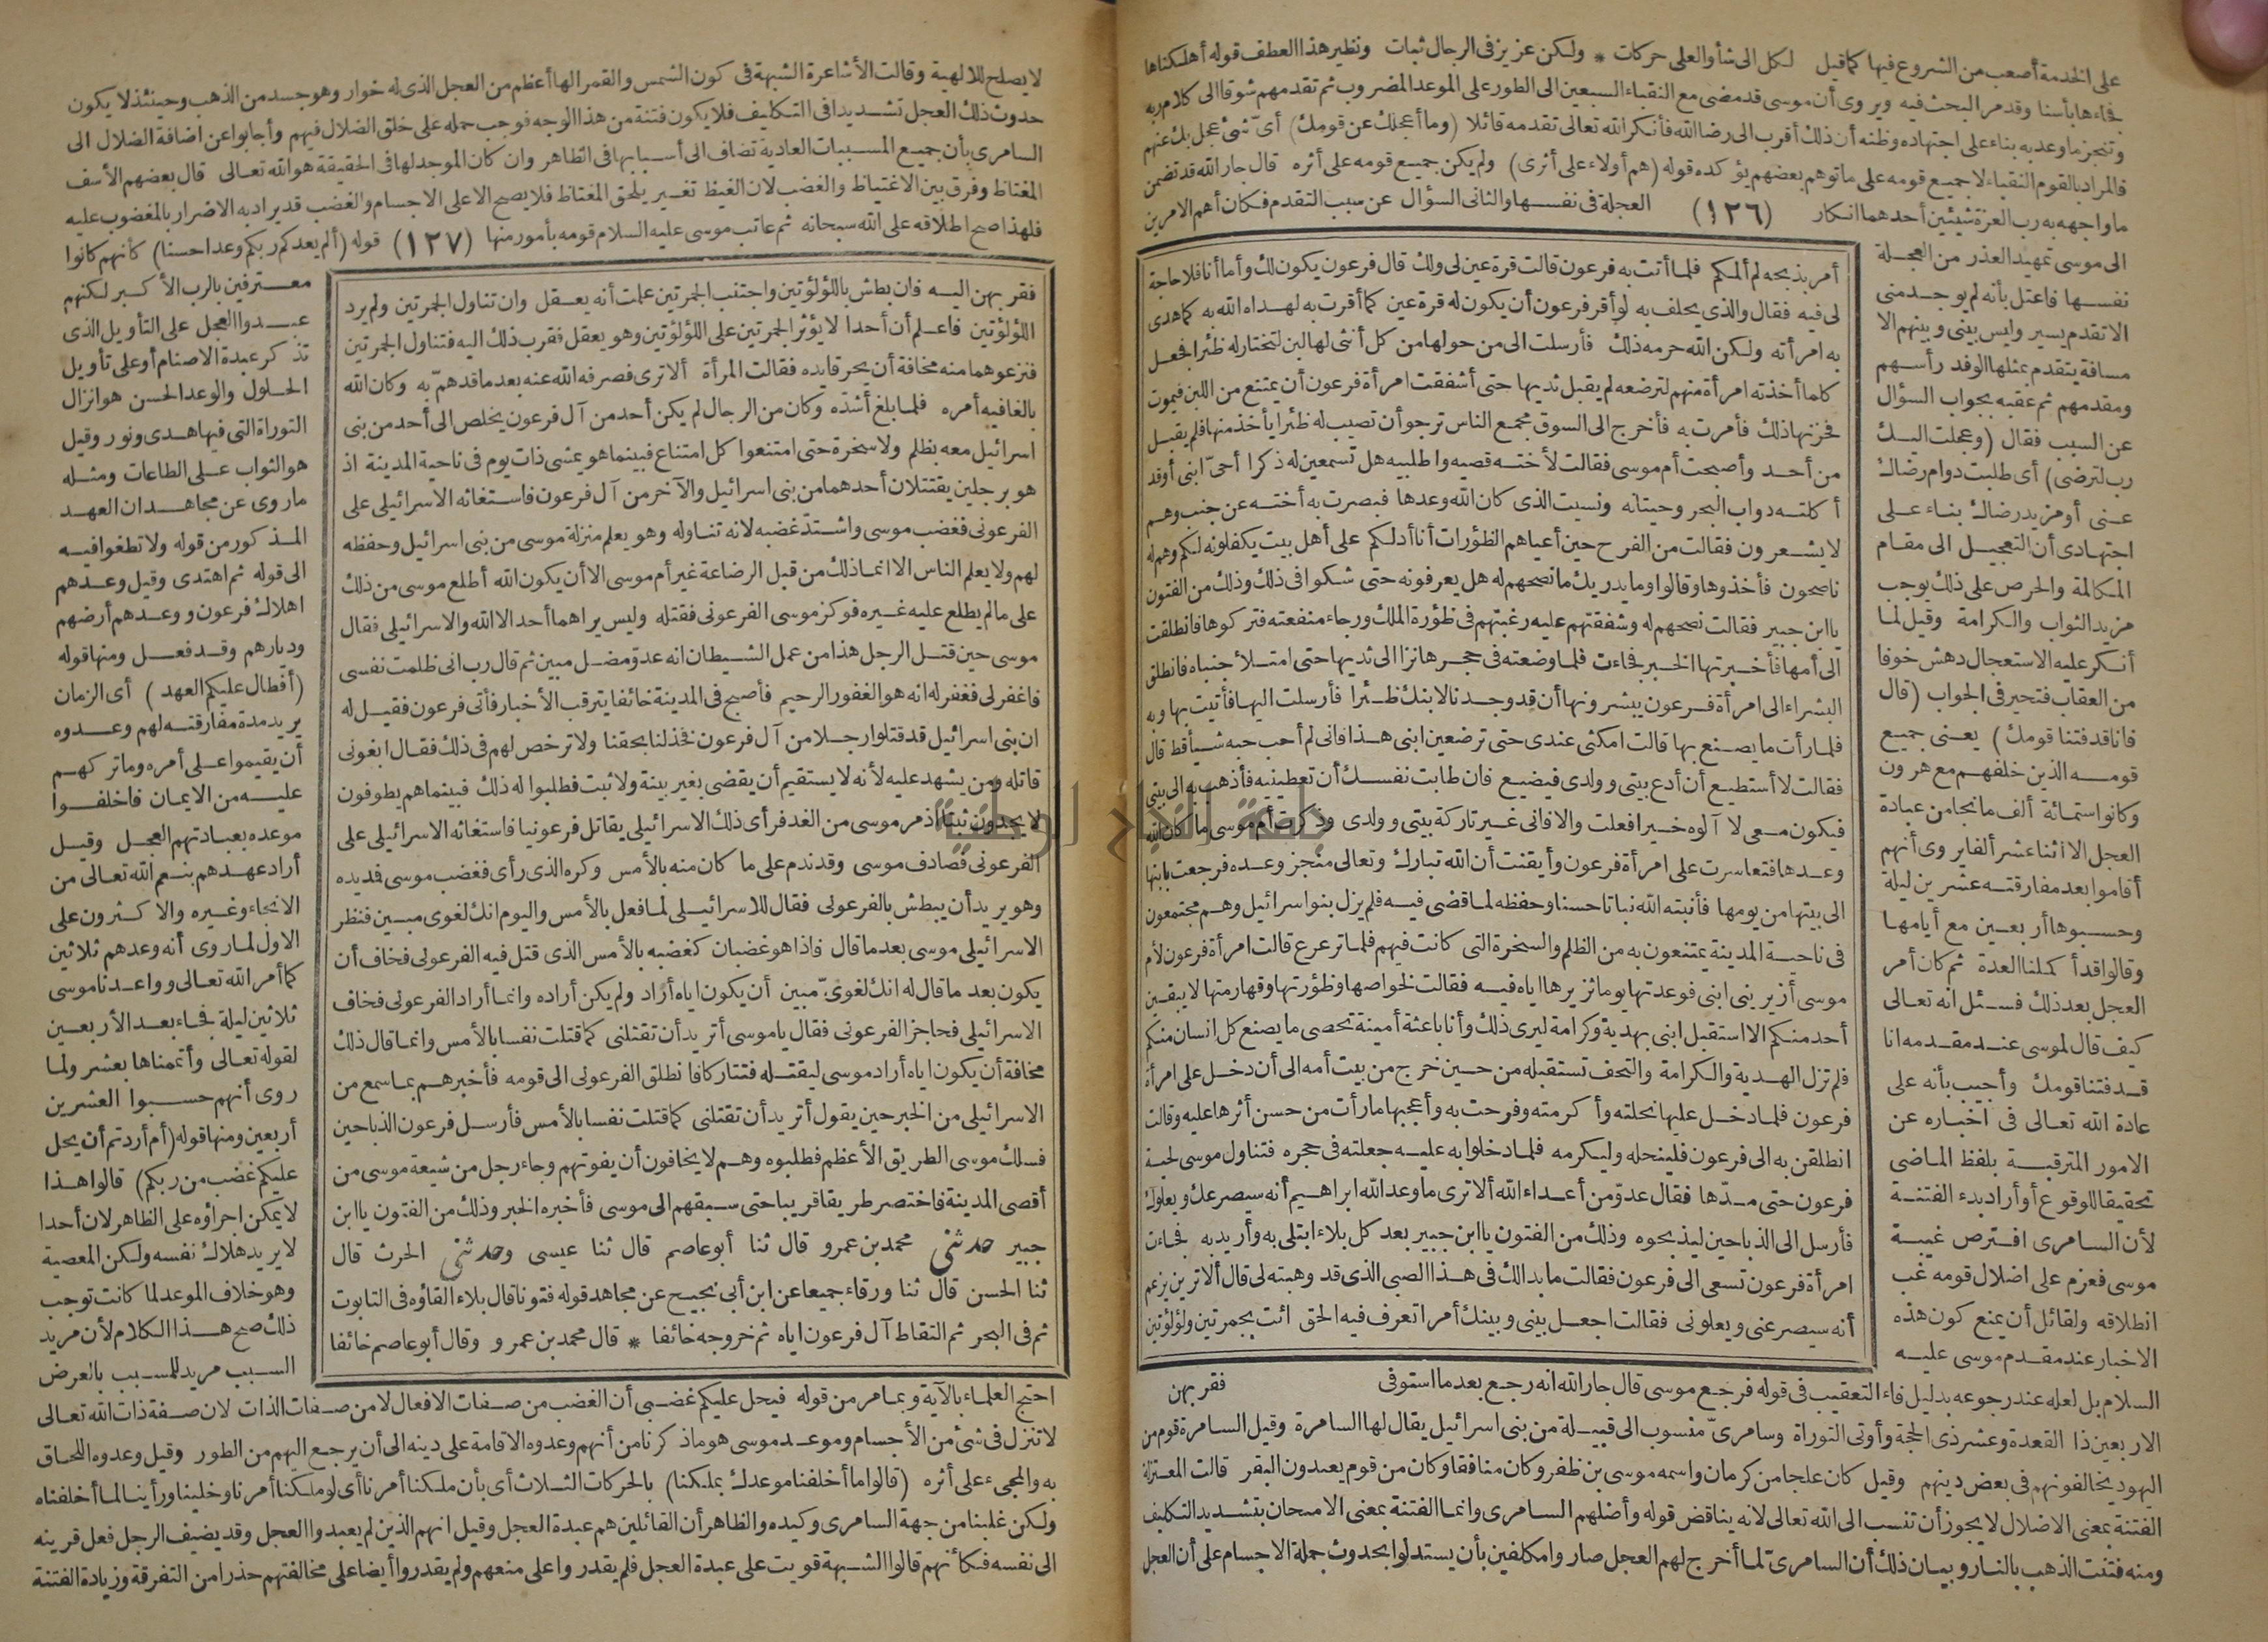 على الخدمة أصعب من الشروع فيها كما قيل لكل الى شأو العلى حركات * ولكن عزيز فى الرجال ثبات ونظير هذا العطف قوله أهلكناها
فجاءها بأسنا وقد مر البحث فيه ويروى أن موسى قد مضى مع النقباء السبعين الى الطور على الموعد المضروب ثم تقدمهم شوقا الى كلام ربه
وتنجز ما وعد به بناء على اجتهاده وظنه أن ذلك أقرب الى رضا الله فأنكر الله تعالى تقدمه قائلا (وما أعجلك عن قومك) أى شئ عجل بك عنهم
فالمراد بالقوم النقباء لا جميع قومه على ما توهم بعضهم يؤكده قوله (هم أولاء على أثرى) ولم يكن جميع قومه على أثره قال جار الله قد تضمن
ما واجهه به رب العزة شيئين أحدهما انكار (١٢٦) العجلة فى نفسها والثانى السؤال عن سبب التقدم فكان أهم الامرين
الى موسى تمهيد العذر من العجلة
نفسها فاعتل بأنه لم يوجد منى
الا تقدم يسير وليس بينى وبينهم الا
مسافة يتقدم بمثلها الوفد رأسهم
ومقدمهم ثم عقبه بجواب السؤال
عن السبب فقال (وعجلت اليك
رب لترضى) أى طلبت دوام رضاك
عنى أو مزيد رضاك بناء على
اجتهادى أن التعجيل الى مقام
المكالمة والحرص على ذلك يوجب
مزيد الثواب والكرامة وقيل لما
أنكر عليه الاستعجال دهش خوفا
من العقاب فتحير فى الجواب (قال
فانا قد فتنا قومك) يعنى جميع
قومه الذين خلفهم مع هرون
وكانوا ستمائة ألف ما نجا من عبادة
العجل الا اثنا عشر ألفا يروى أنهم
أقاموا بعد مفارقته عشرين ليلة
وحسبوها أربعين مع أيامها
وقالوا قد أكملنا العدة ثم كان أمر
العجل بعد ذلك فسئل انه تعالى
كيف قال لموسى عند مقدمه انا
قد فتنا قومك وأجيب بأنه على
عادة الله تعالى فى اخباره عن
الامور المترقبة بلفظ الماضى
تحقيقا للوقوع أو أراد بدء الفتنة
لأن السامرى افترص غيبة
موسى فعزم على اضلال قومه غب
انطلاقه ولقائل أن يمنع كون هذه
الاخبار عند مقدم موسى عليه
أمر بذبحه لم ألمكم فلما أتت به فرعون قالت قرة عين لى ولك قال فرعون يكون لك وأما أنا فلا حاجة
لى فيه فقال والذى يحلف به لو أقر فرعون أن يكون له قرة عين كما أقرت به لهداه الله به كما هدى
به امرأته ولكن الله حرمه ذلك فأرسلت الى من حولها من كل أنثى لها لبن لتختار له ظئرا فجعل
كلما أخذته امرأة منهم لترضعه لم يقبل ثديها حتى أشفقت امرأة فرعون أن يمتنع من اللبن فيموت
فحزنها ذلك فأمرت به فأخرج الى السوق مجمع الناس ترجو أن تصيب له ظئرا يأخذ منها فلم يقبل
من أحد وأصبحت أم موسى فقالت لأخته قصيه واطلبيه هل تسمعين له ذكرا أحى ابنى أو قد
أكلته دواب البحر وحيتانه ونسيت الذى كان الله وعدها فبصرت به أخته عن جنب وهم
لا يشعرون فقالت من الفرح حين أعياهم الظؤرات أنا أدلكم على أهل بيت يكفلونه لكم وهم له
ناصحون فأخذوها وقالوا وما يدريك ما نصحهم له هل يعرفونه حتى شكوا فى ذلك وذلك من الفتون
يا ابن جبير فقالت نصحهم له وشفقتهم عليه رغبتهم فى ظؤرة الملك ورجاء منفعته فتركوها فانطلقت
الى أمها فأخبرتها الخبر فجاءت فلما وضعته فى حجرها نزا الى ثديها حتى امتلأ جنباه فانطلق
البشراء الى امرأة فرعون يبشرونها أن قد وجدنا لابنك ظئرا فأرسلت اليها فأتيت بها وبه
فلما رأت ما يصنع بها قالت امكثى عندى حتى ترضعين ابنى هذا فانى لم أحب حبه شيأ قط قال
فقالت لا أستطيع أن أدع بيتى وولدى فيضيع فان طابت نفسك أن تعطينيه فأذهب به الى بيتى
فيكون معى لا آلوه خيرا فعلت والا فانى غير تاركة بيتى وولدى وذكرت أم موسى ما كان الله
وعدها فتعاسرت على امرأة فرعون وأيقنت أن الله تبارك وتعالى منجز وعده فرجعت بابنها
الى بيتها من يومها فأنبته الله نباتا حسنا وحفظه لما قضى فيه فلم يزل بنو اسرائيل وهم مجتمعون
فى ناحية المدينة يمتنعون به من الظلم والسخرة التى كانت فيهم فلما ترعرع قالت امرأة فرعون لأم
موسى أزيرينى ابنى فوعدتها يوما تزيرها اياه فيه فقالت لخواصها وظؤرتها وقهارمتها لا يبقين
أحد منكم الا استقبل ابنى بهدية وكرامة ليرى ذلك وأنا باعثة أمينة تحصى ما يصنع كل انسان منكم
فلم تزل الهدية والكرامة والتحف تستقبله من حين خرج من بيت أمه الى أن دخل على امرأة
فرعون فلما دخل عليها نحلته وأكرمته وفرحت به وأعجبها ما رأت من حسن أثرها عليه وقالت
انطلقن به الى فرعون فلينحله وليكرمه فلما دخلوا به عليه جعلته فى حجره فتناول موسى لحية
فرعون حتى مدها فقال عدو من أعداء الله ألا ترى ما وعد الله ابراهيم أنه سيصرعك ويعلوك
فأرسل الى الذباحين ليذبحوه وذلك من الفتون يا ابن جبير بعد كل بلاء ابتلى به وأريد به فجاءت
امرأة فرعون تسعى الى فرعون فقالت ما بدا لك فى هذا الصبى الذى قد وهبته لى قال ألا ترين يزعم
أنه سيصرعنى ويعلونى فقالت اجعل بينى وبينك أمرا تعرف فيه الحق ائت بجمرتين ولؤلؤتين
فقربهن
السلام بل لعله عند رجوعه بدليل فاء التعقيب فى قوله فرجع موسى قال جار الله انه رجع بعد ما استوفى
الاربعين ذا القعدة وعشر ذى الحجة وأوتى التوراة وسامرى منسوب الى قبيلة من بنى اسرائيل يقال لها السامرة وقيل السامرة قوم من
اليهود يخالفونهم فى بعض دينهم وقيل كان علجا من كرمان واسمه موسى بن ظفر وكان منافقا وكان من قوم يعبدون البقر قالت المعتزلة
الفتنة بمعنى الاضلال لا يجوز أن تنسب الى الله تعالى لانه يناقض قوله وأضلهم السامرى وانما الفتنة بمعنى الامتحان بتشديد التكليف
ومنه فتنت الذهب بالنار وبيان ذلك أن السامرى لما أخرج لهم العجل صاروا مكلفين بأن يستدلوا بحدوث جملة الاجسام على أن العجل
لا يصلح للالهية وقالت الأشاعرة الشبهة فى كون الشمس والقمر الها أعظم من العجل الذى له خوار وهو جسد من الذهب وحينئذ لا يكون
حدوث ذلك العجل تشديدا فى التكليف فلا يكون فتنة من هذا الوجه فوجب حمله على خلق الضلال فيهم وأجابوا عن اضافة الضلال الى
السامرى بأن جميع المسببات العادية تضاف الى أسبابها فى الظاهر وان كان الموجد لها فى الحقيقة هو الله تعالى قال بعضهم الأسف
المغتاظ وفرق بين الاغتياظ والغضب لان الغيظ تغير يلحق المغتاظ فلا يصح الا على الاجسام والغضب قد يراد به الاضرار بالمغضوب عليه
فلهذا صح اطلاقه على الله سبحانه ثم عاتب موسى عليه السلام قومه بأمور منها (١٢٧) قوله (ألم يعدكم ربكم وعدا حسنا) كأنهم كانوا
فقربهن اليه فان بطش باللؤلؤتين واجتنب الجمرتين علمت أنه يعقل وان تناول الجمرتين ولم يرد
اللؤلؤتين فاعلم أن أحدا لا يؤثر الجمرتين على اللؤلؤتين وهو يعقل فقرب ذلك اليه فتناول الجمرتين
فنزعوهما منه مخافة أن يحرقا يده فقالت المرأة ألا ترى فصرفه الله عنه بعد ما قد هم به وكان الله
بالغا فيه أمره فلما بلغ أشده وكان من الرجال لم يكن أحد من آل فرعون يخلص الى أحد من بنى
اسرائيل معه بظلم ولا سخرة حتى امتنعوا كل امتناع فبينما هو يمشى ذات يوم فى ناحية المدينة اذ
هو برجلين يقتتلان أحدهما من بنى اسرائيل والآخر من آل فرعون فاستغاثه الاسرائيلى على
الفرعونى فغضب موسى واشتد غضبه لانه تناوله وهو يعلم منزلة موسى من بنى اسرائيل وحفظه
لهم ولا يعلم الناس الا انما ذلك من قبل الرضاعة غير أم موسى الا أن يكون الله أطلع موسى من ذلك
على ما لم يطلع عليه غيره فوكز موسى الفرعونى فقتله وليس يراهما أحد الا الله والاسرائيلى فقال
موسى حين قتل الرجل هذا من عمل الشيطان انه عدو مضل مبين ثم قال رب انى ظلمت نفسى
فاغفر لى فغفر له انه هو الغفور الرحيم فأصبح فى المدينة خائفا يترقب الأخبار فأتى فرعون فقيل له
ان بنى اسرائيل قد قتلوا رجلا من آل فرعون فخذ لنا بحقنا ولا ترخص لهم فى ذلك فقال ابغونى
قاتله ومن يشهد عليه لأنه لا يستقيم أن يقضى بغير بينة ولا ثبت فطلبوا له ذلك فبينما هم يطوفون
لا يجدون ثبتا اذ مر موسى من الغد فرأى ذلك الاسرائيلى يقاتل فرعونيا فاستغاثه الاسرائيلى على
الفرعونى فصادف موسى وقد ندم على ما كان منه بالأمس وكره الذى رأى فغضب موسى فمد يده
وهو يريد أن يبطش بالفرعونى فقال للاسرائيلى لما فعل بالأمس واليوم انك لغوى مبين فنظر
الاسرائيلى موسى بعد ما قال فاذا هو غضبان كغضبه بالأمس الذى قتل فيه الفرعونى فخاف أن
يكون بعد ما قال له انك لغوى مبين أن يكون اياه أراد ولم يكن أراده وانما أراد الفرعونى فخاف
الاسرائيلى فحاجز الفرعونى فقال يا موسى أتريد أن تقتلنى كما قتلت نفسا بالأمس وانما قال ذلك
مخافة أن يكون اياه أراد موسى ليقتله فتتاركا فانطلق الفرعونى الى قومه فأخبرهم بما سمع من
الاسرائيلى من الخبر حين يقول أتريد أن تقتلنى كما قتلت نفسا بالأمس فأرسل فرعون الذباحين
فسلك موسى الطريق الأعظم فطلبوه وهم لا يخافون أن يفوتهم وجاء رجل من شيعة موسى من
أقصى المدينة فاختصر طريقا قريبا حتى سبقهم الى موسى فأخبره الخبر وذلك من الفتون يا ابن
جبير حدثنى محمد بن عمرو قال ثنا أبو عاصم قال ثنا عيسى وحدثنى الحرث قال
ثنا الحسن قال ثنا ورقاء جميعا عن ابن أبى نجيح عن مجاهد قوله فتونا قال بلاء القاؤه فى التابوت
ثم فى البحر ثم التقاط آل فرعون اياه ثم خروجه خائفا * قال محمد بن عمرو وقال أبو عاصم خائفا
معترفين بالرب الأكبر لكنهم
عبدوا العجل على التأويل الذى
تذكر عبدة الاصنام أو على تأويل
الحلول والوعد الحسن هو انزال
التوراة التى فيها هدى ونور وقيل
هو الثواب على الطاعات ومثله
ما روى عن مجاهد ان العهد
المذكور من قوله ولا تطغوا فيه
الى قوله ثم اهتدى وقيل وعدهم
اهلاك فرعون ووعدهم أرضهم
وديارهم وقد فعل ومنها قوله
(أفطال عليكم العهد) أى الزمان
يريد مدة مفارقته لهم وعدوه
أن يقيموا على أمره وما تركهم
عليه من الايمان فاخلفوا
موعده بعبادتهم العجل وقيل
أراد عهدهم بنعم الله تعالى من
الانجاء وغيره والاكثرون على
الاول لما روى أنه وعدهم ثلاثين
كما أمر الله تعالى وواعدنا موسى
ثلاثين ليلة فجاء بعد الأربعين
لقوله تعالى وأتممناها بعشر ولما
روى أنهم حسبوا العشرين
أربعين ومنها قوله (أم أردتم أن يحل
عليكم غضب من ربكم) قالوا هذا
لا يمكن اجراؤه على الظاهر لان أحدا
لا يريد هلاك نفسه ولكن المعصية
وهو خلاف الموعد لما كانت توجب
ذلك صح هذا الكلام لأن مريد
السبب مريد للمسبب بالعرض
احتج العلماء بالآية وبما مر من قوله فيحل عليكم غضبى أن الغضب من صفات الافعال لا من صفات الذات لان صفة ذات الله تعالى
لا تنزل فى شئ من الأجسام وموعد موسى هو ما ذكرنا من أنهم وعدوه الاقامة على دينه الى أن يرجع اليهم من الطور وقيل وعدوه اللحاق
به والمجىء على أثره (قالوا ما أخلفنا موعدك بملكنا) بالحركات الثلاث أى بأن ملكنا أمرنا أى لو ملكنا أمرنا وخلينا ورأينا لما أخلفناه
ولكن غلبنا من جهة السامرى وكيده والظاهر أن القائلين هم عبدة العجل وقيل انهم الذين لم يعبدوا العجل وقد يضيف الرجل فعل قرينه
الى نفسه فكأنهم قالوا الشبهة قويت على عبدة العجل فلم يقدروا على منعهم ولم يقدروا أيضا على مخالفتهم حذرا من التفرقة وزيادة الفتنة